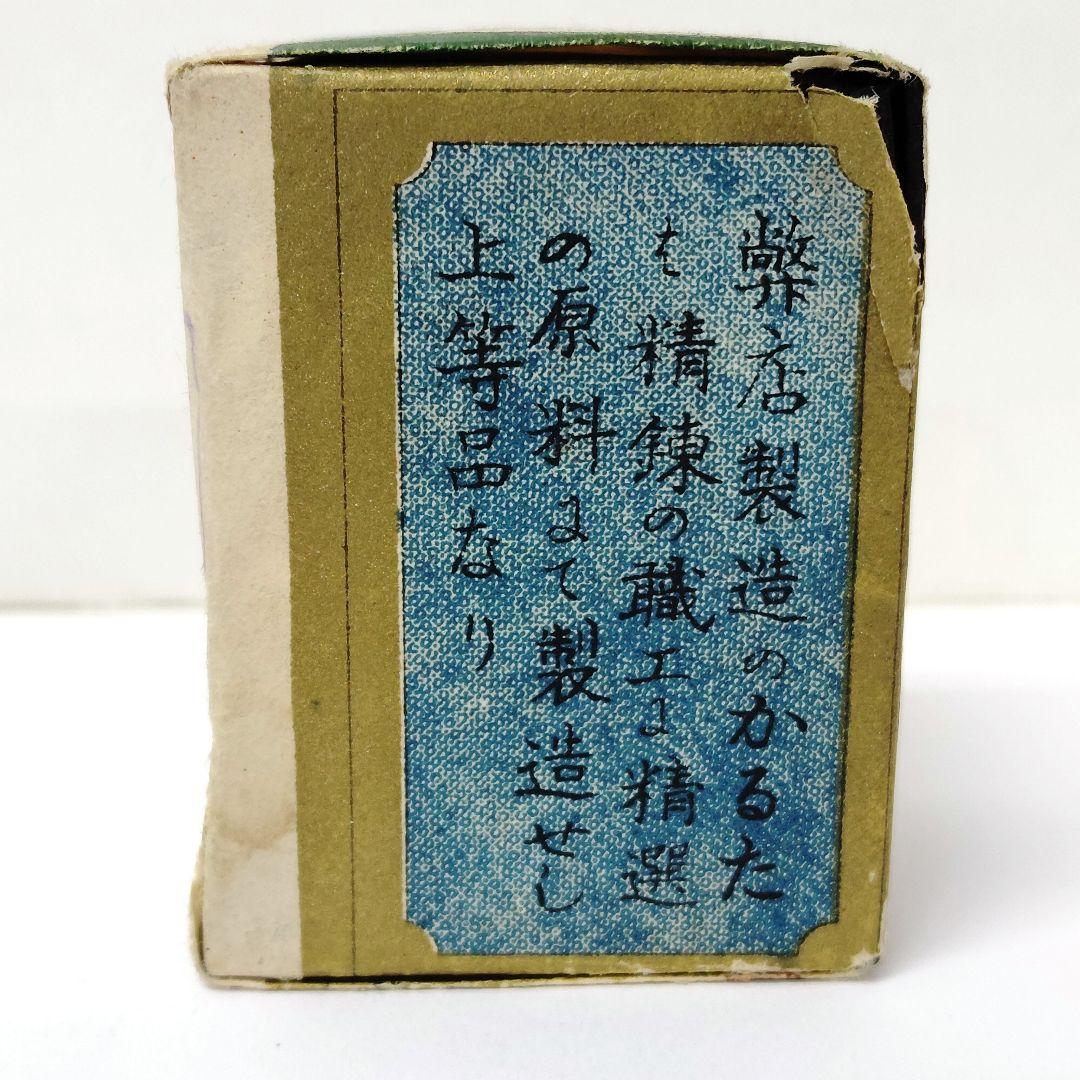 弊店製造のかるた
は精錬の職工に精選
の原料にて製造せし
上等品なり